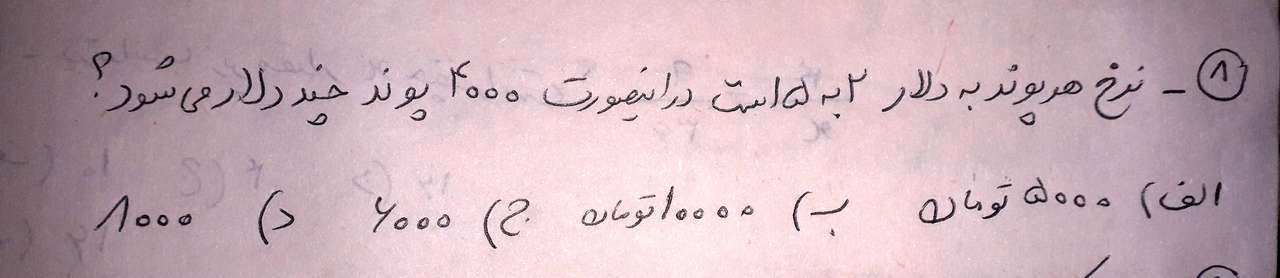 ۸- نرخ هر پوند به دلار ۲ به ۵ است در اینصورت ۴۰۰۰ پوند چند دلار می شود؟
الف) ۵۰۰۰ تومان ب) ۱۰۰۰۰ تومان ج) ۶۰۰۰ د) ۸۰۰۰